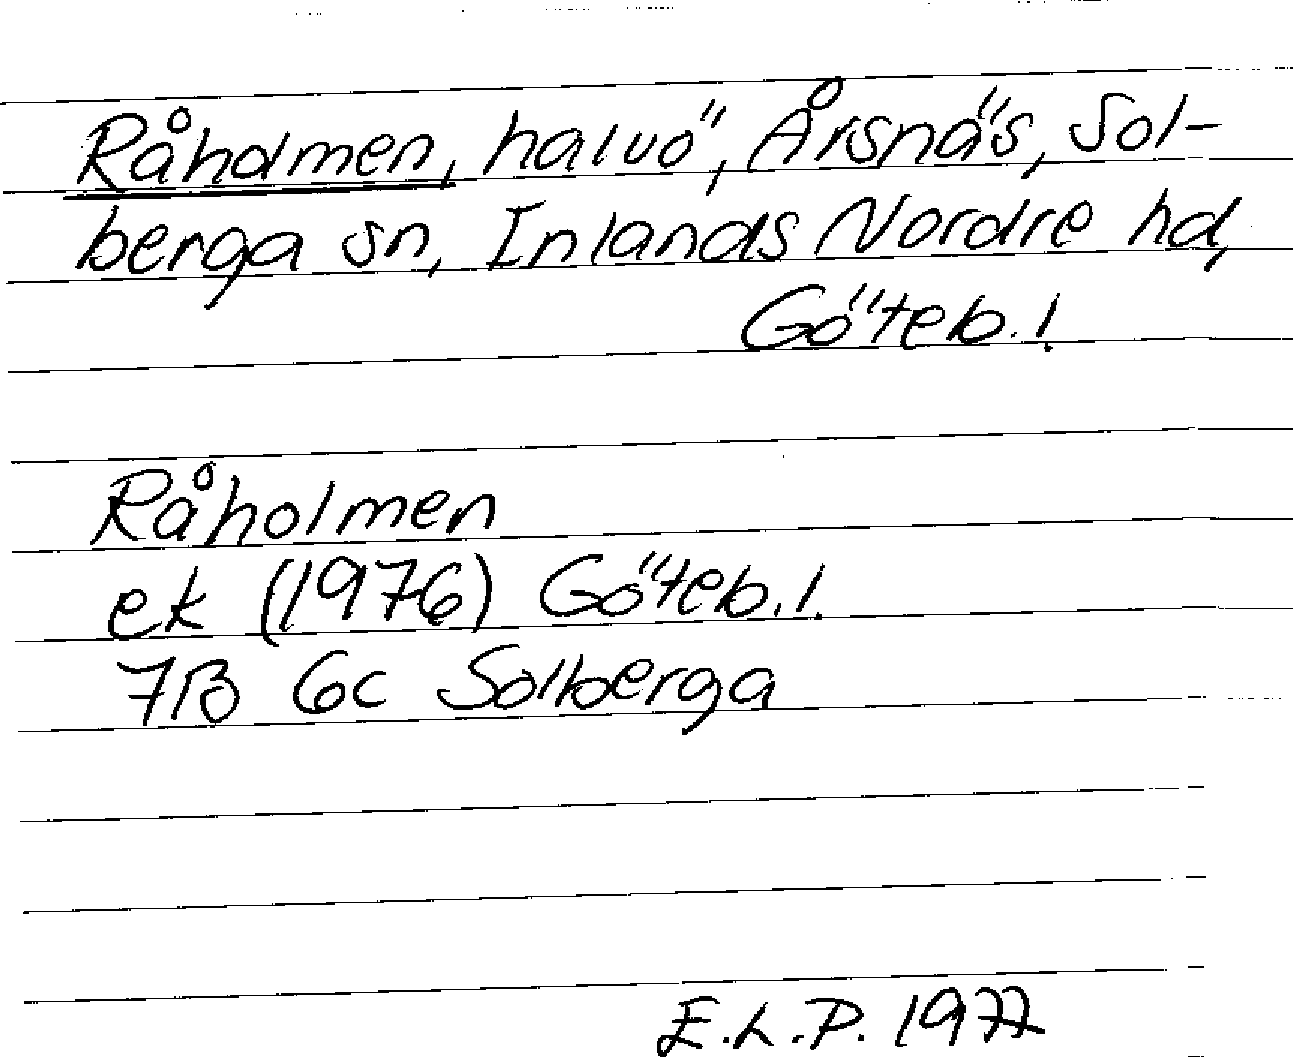 Råholmen, halvö, Årsnäs, Sol-
berga sn, Inlands Nordre hd,
Göteb. l
Råholmen
ek (1976) Göteb. l.
7B 6c Solberga
E.L.P. 1977